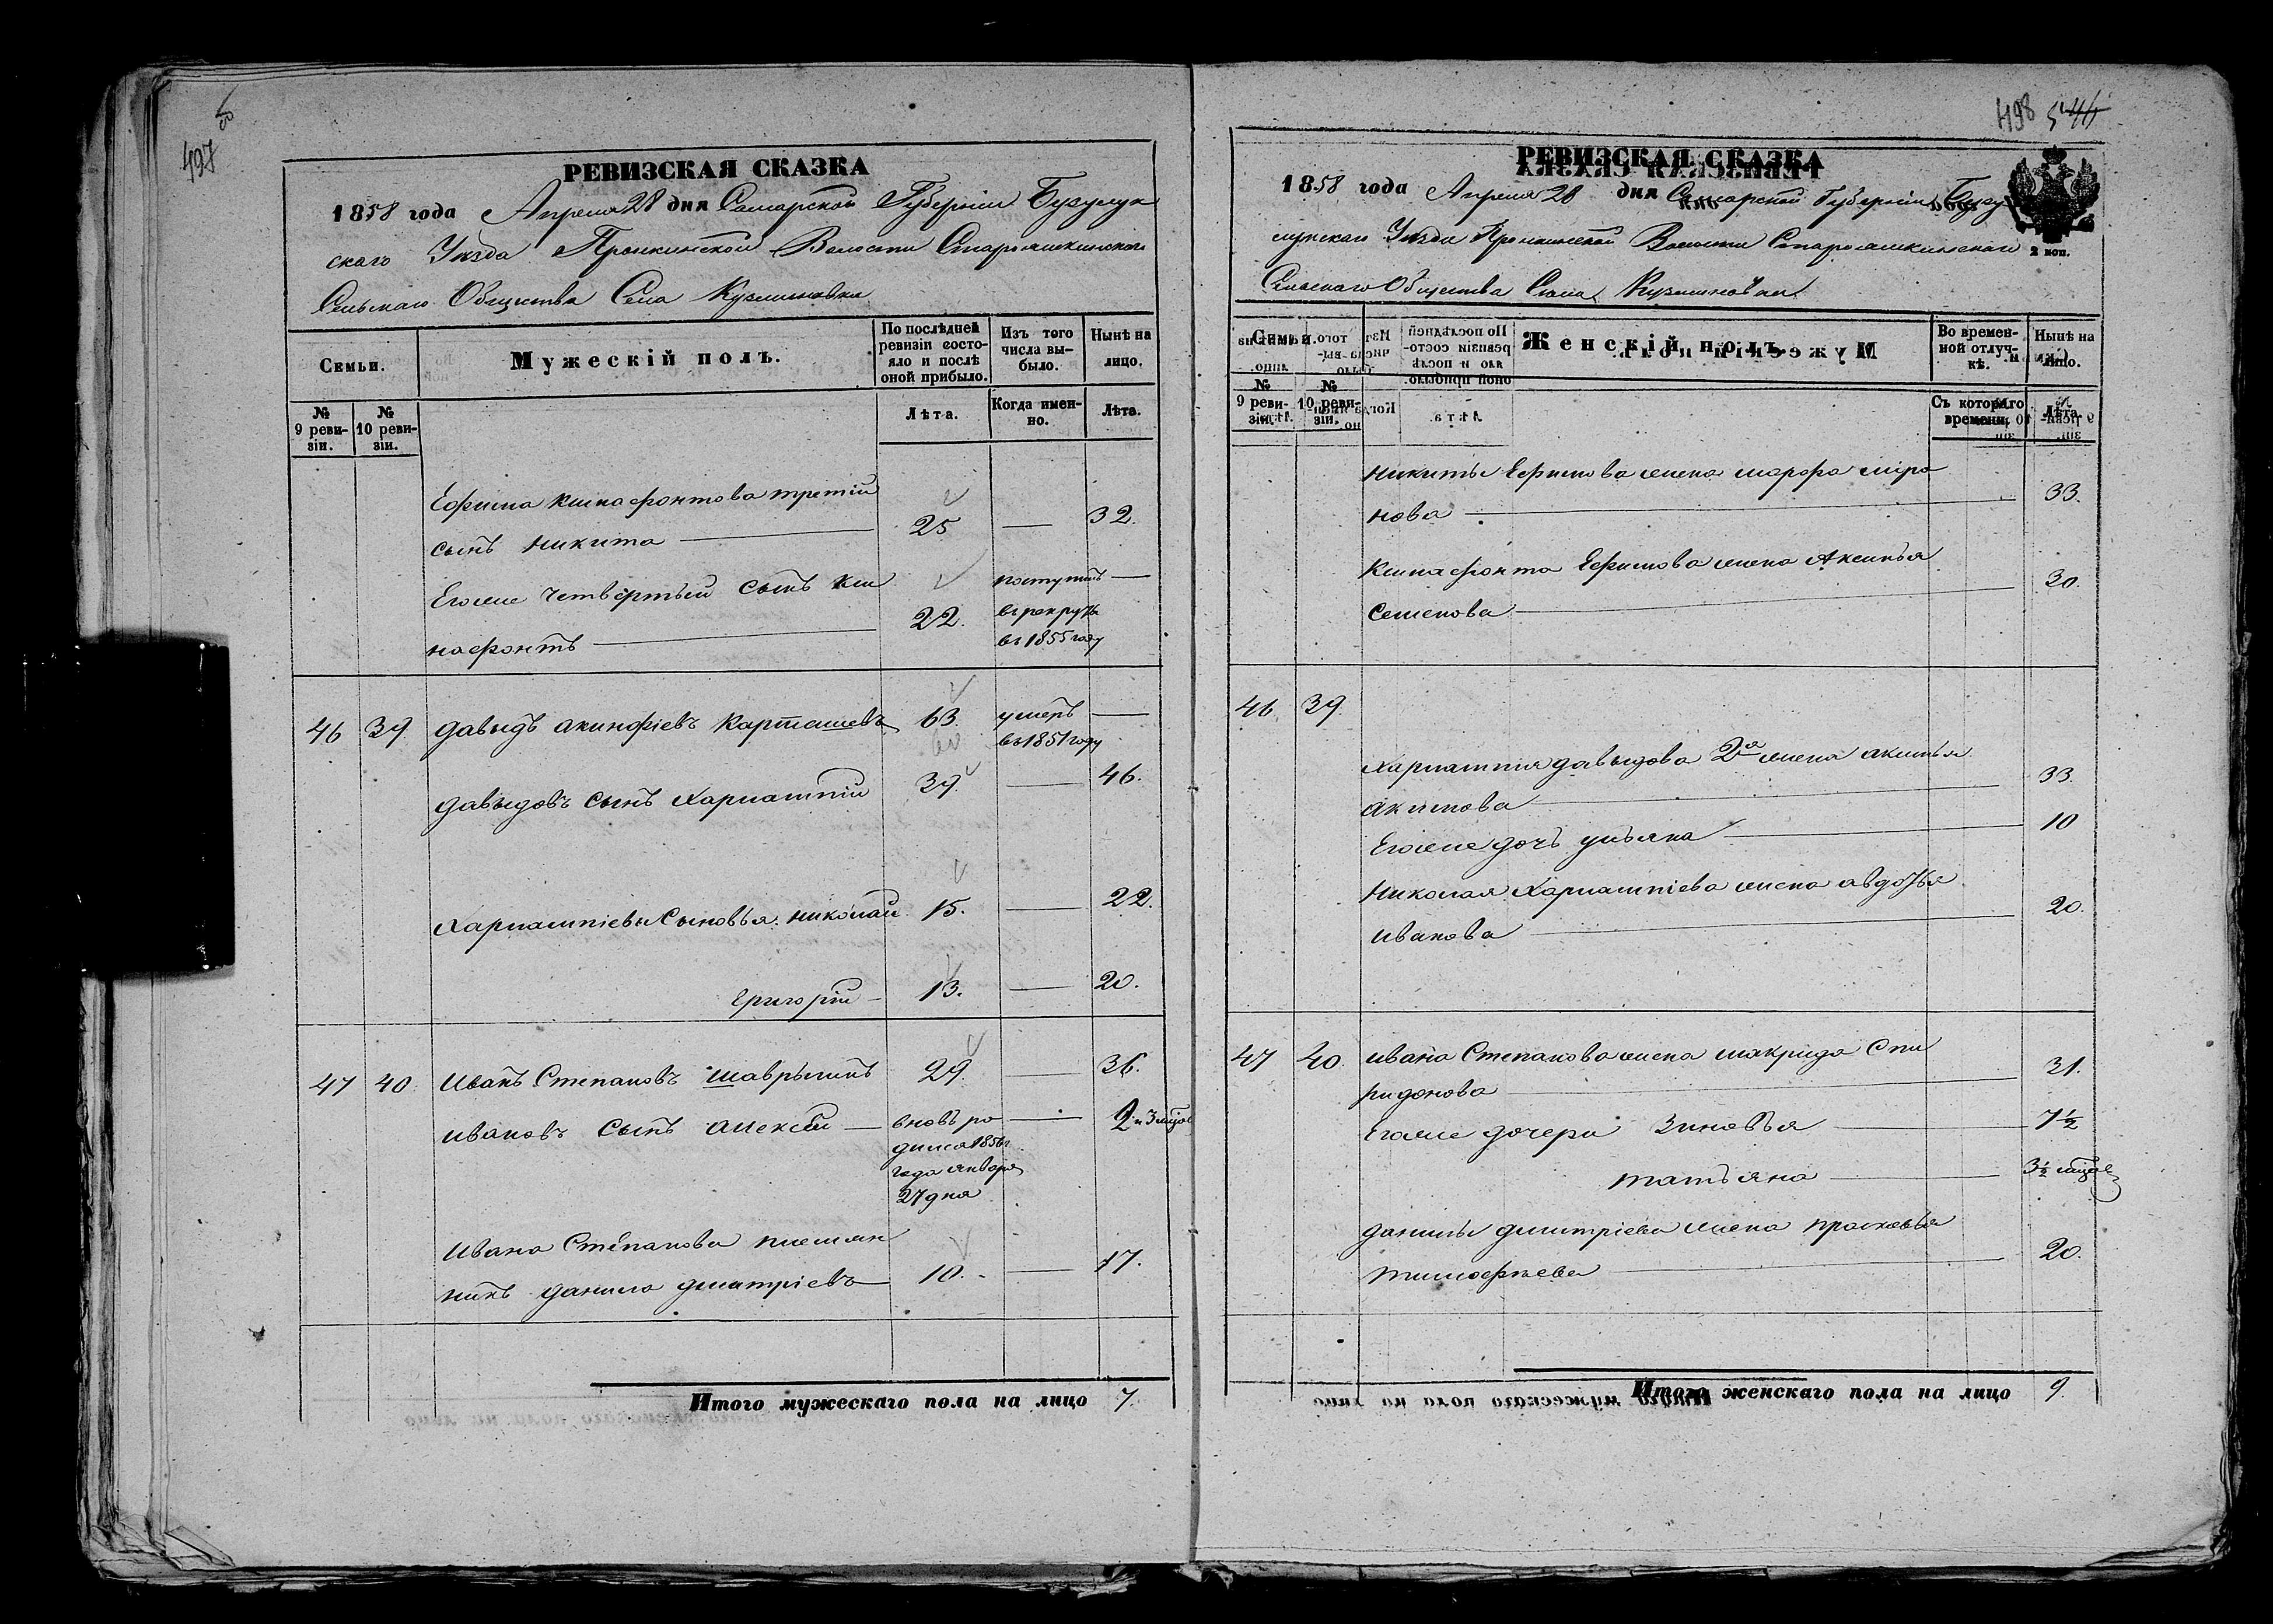 497
РЕВИЗСКАЯ СКАЗКА
1858 года Апреля 28 дня Самарской Губерніи Бузулук
скаго Уѣзда Пронкинской Волости Староашкинскаго
Сельскаго Общества Села Кузминовки
Семьи.
Мужескій полъ.
По послѣдней ревизіи состояло и послѣ оной прибыло.
Изъ того числа выбыло.
Нынѣ на лицо.
№ 9 ревизіи.
№ 10 ревизіи.
Лѣта.
Когда именно.
Лѣта.
Ефима Кинафонтова третій
сынъ Никита 25 — 32.
Егоже четвёртый сынъ Ки
нафонтъ 22. поступилъ —
в рекруты
в 1855 году
46 39 Давыдъ Акинфіевъ Карташевъ 63. умеръ —
в 1851 году
Давыдовъ сынъ Харлампій 39. — 46.
Харлампіевы Сыновья: Николай 15. — 22.
Григорій — 13. — 20.
47 40. Иванъ Степановъ Шаврыгинъ 29. — 36.
Ивановъ сынъ Алексѣй — вновь ро — 2 и 3 мѣсяц
дился 1856
года января
27 дня
Ивана Степанова племян
никъ Данила Дмитріевъ 10. — 17.
Итого мужескаго пола на лицо 7.
498 544
РЕВИЗСКАЯ СКАЗКА
1858 года Апреля 28 дня Самарской Губерніи Бузу
лукскаго Уѣзда Пронкинской Волости Староашкинскаго
2 коп.
Сельскаго Общества Села Кузминовки
Семьи.
Женскій полъ.
Во временной отлучкѣ.
Нынѣ на лицо.
№ 9 ревизіи.
№ 10 ревизіи.
Съ котораго времени.
Лѣта.
Никиты Ефимова жена Марфа Миро
нова 33.
Кинафонта Ефимова жена Аксинья
Семенова 30.
46. 39.
Харлампия Давыдова 2я жена Аксинья
Акимова 33.
Егоже дочь Ульяна 10
Николая Харлампіева жена Авдотья
Иванова 20.
47 40. Ивана Степанова жена Макрида Спи
ридонова 31.
Егоже дочери Зиновья 7½
Татьяна 3½ мѣсяц
Данилы Дмитріева жена Прасковья
Тимофѣева 20.
Итого женскаго пола на лицо 9.